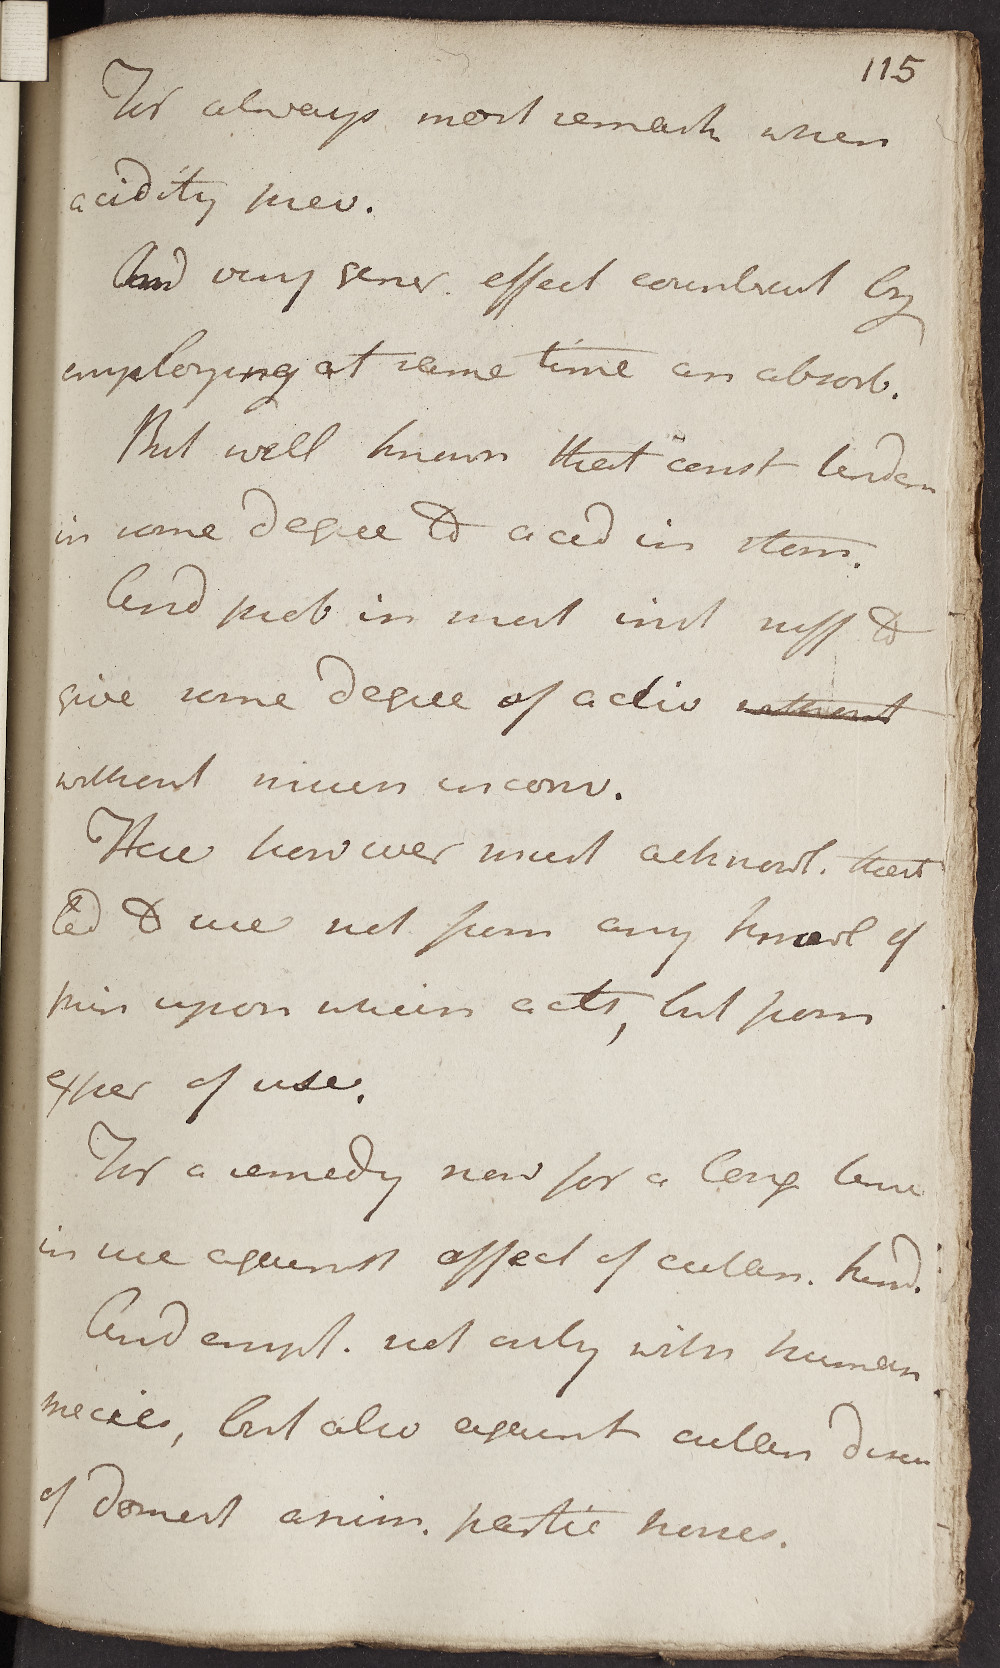 115
Tis always most remark when
acidity prev.
And very gener. effect counteract by
employing at same time an absorb.
But well known that const tenden
in some degree to acid in stom.
And prob in most inst suff to
give some degree of activ without
without much inconv.
Here however must acknowl. that
led to use not from any knowl of
prin upon which acts, but from
exper of use.
Tis a remedy now for a long time
in use against affect of cutan. kind.
And empl. not only with human
species, but also against cutan disea
of domest anim. partic horses.